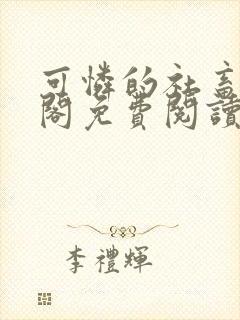 可憐的社畜
閣免費閱讀
李禮輝